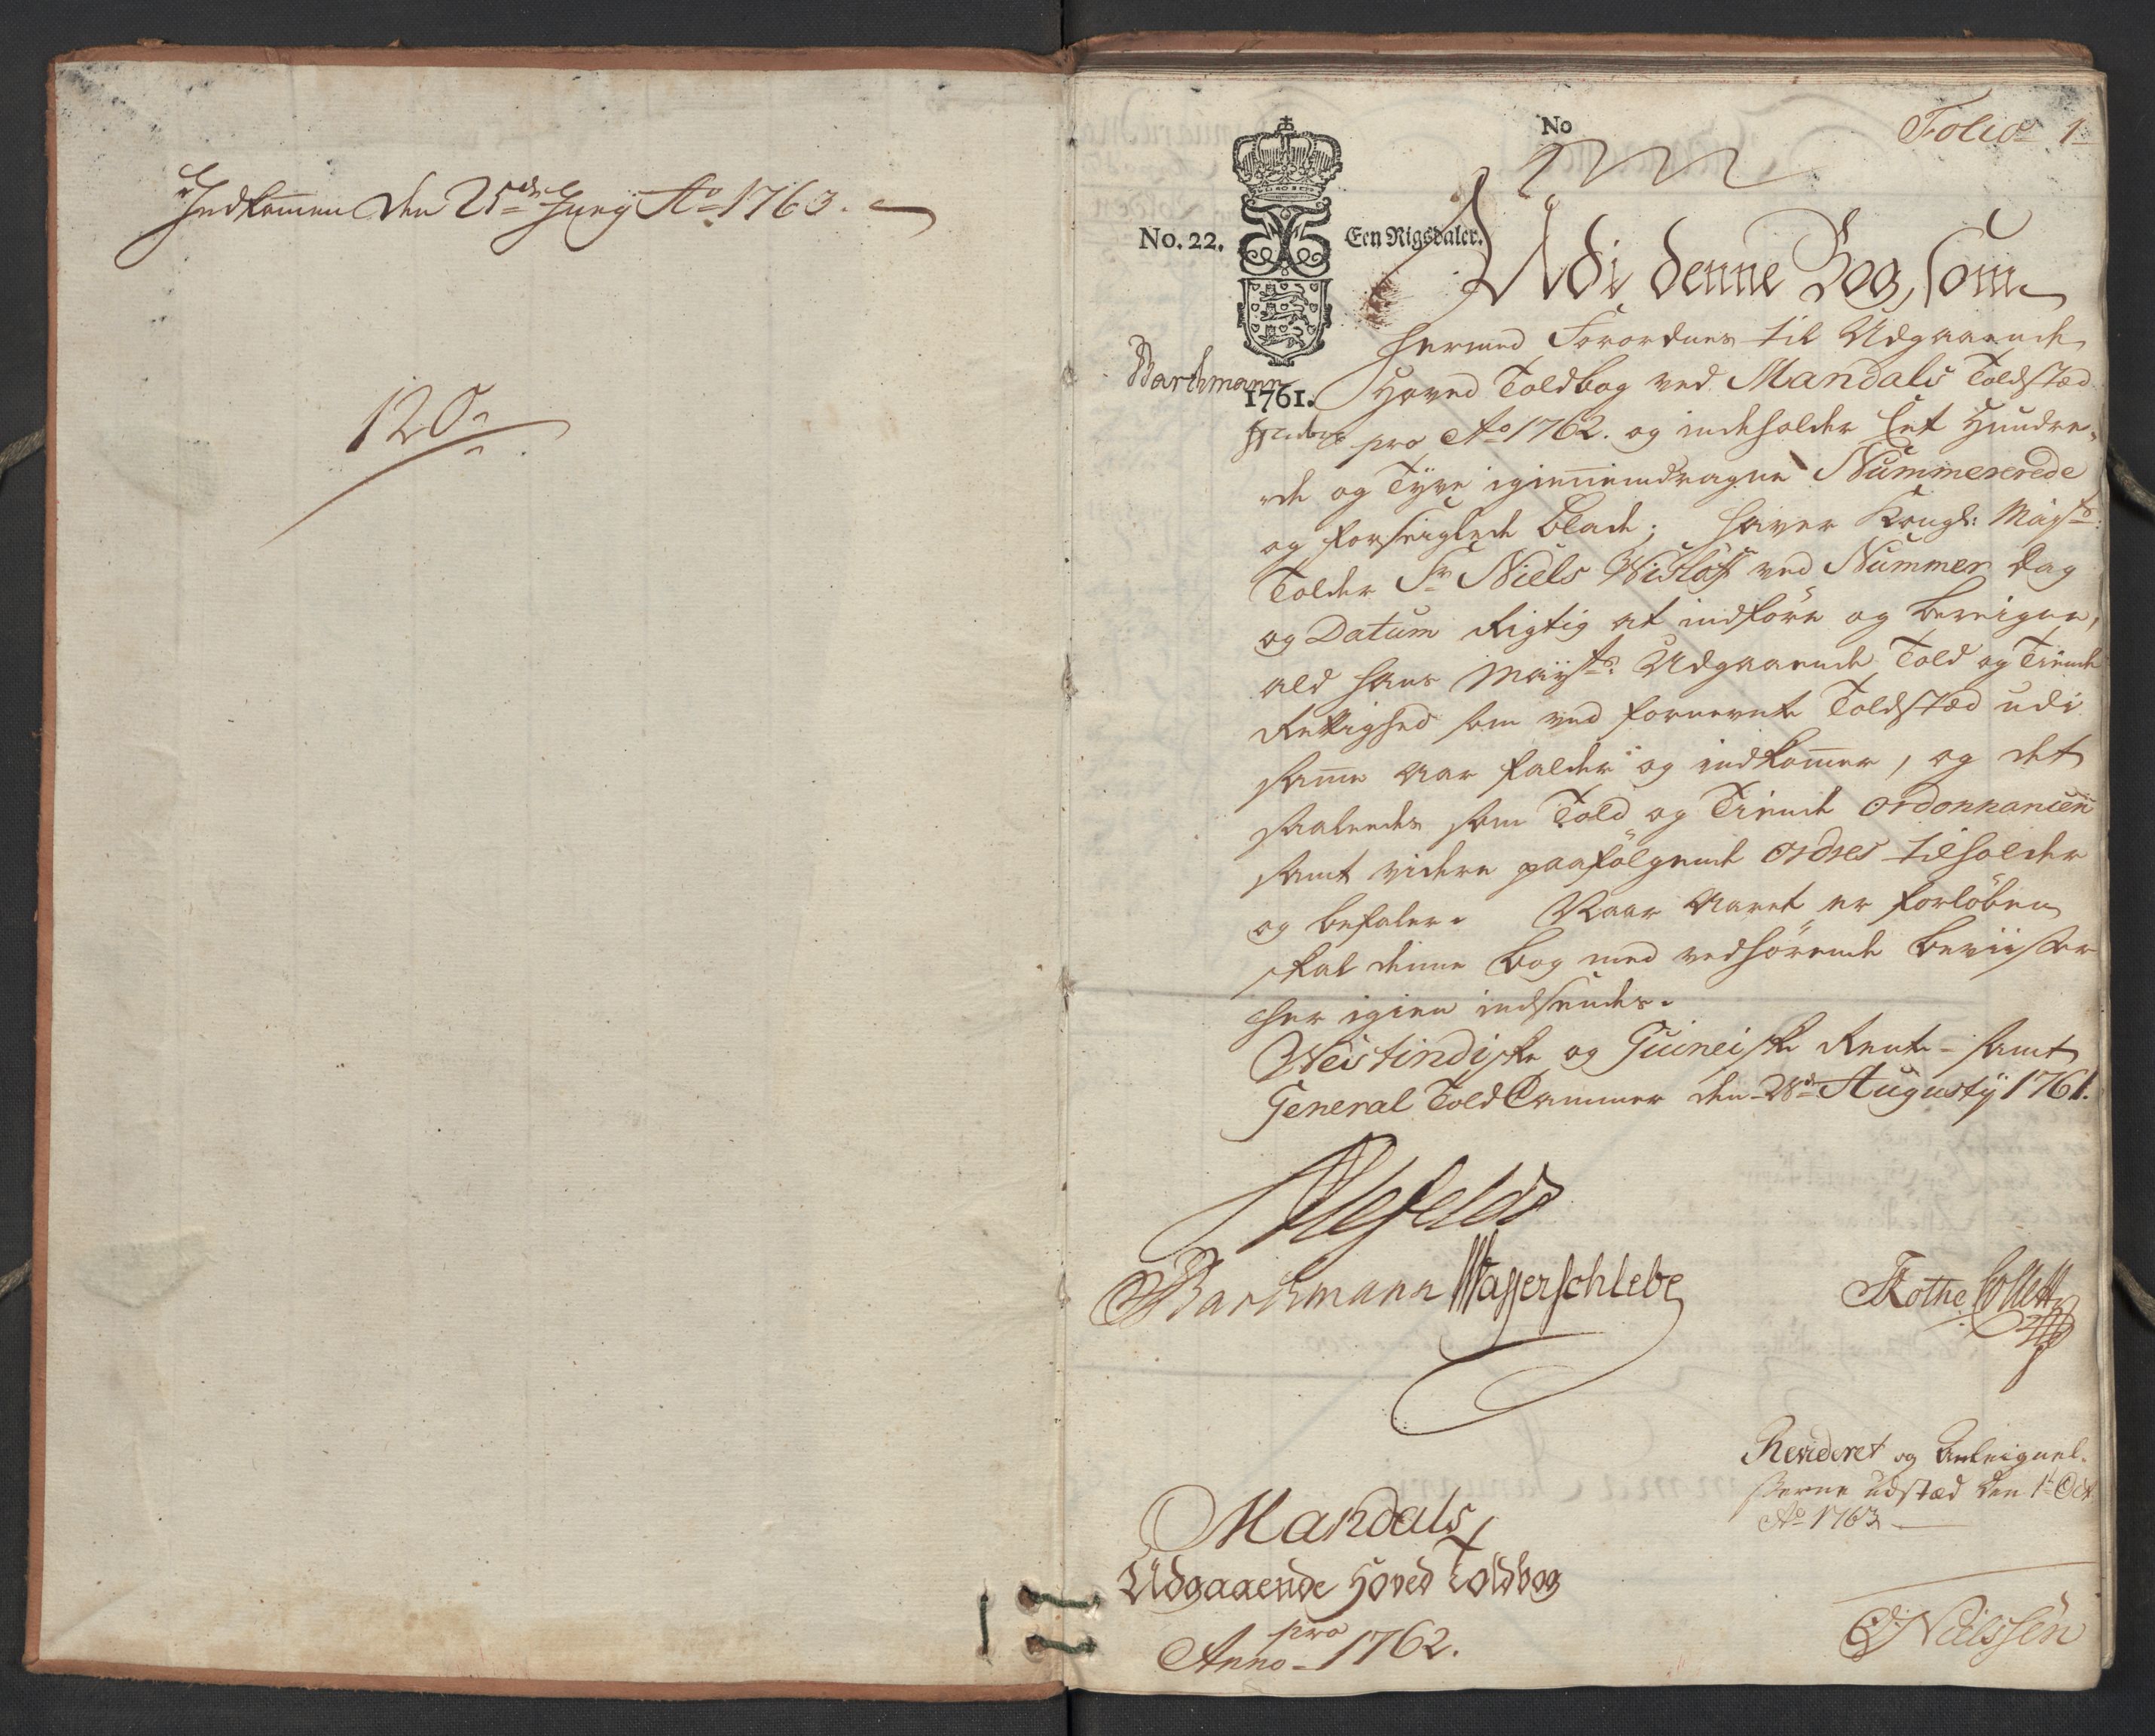 Indkommen den 25de Juny Ao 1763.
120
Folio 1
No
No. 22.
Een Rigsdaler.
1761.
Barthmann
Udi denne Bog, som
hermed Forordnes til Udgaaende
Hoved Toldbog ved Mandals Toldstæd
pro Ao 1762. og indeholder Eet Hundre-
de og Tyve igiennemdragne Nummererede
og forseiglede Blade; haver Kongl: Mayts:
Tolder Sr Niels ved Nummer Dag
og Datum Rigtig at indföre og bereigne,
ald Hans Mayts: Udgaaende Told og Tiende
Rettighed som ved fornevnte Toldstæd udi
samme Aar falder og indkommer, og det
saaledes som Told og Tiende Ordonnancen
samt videre paafölgende Ordres tilholder
og befaler. Naar Aaret er forlöben
skal denne Bog med vedhörende Beviiser
her igien indsendes.
Westindiske og Guineiske Rente- samt
General ToldCammer den 28de Augusty 1761.
Ahlefeldt
Barthmann Wasserschlebe
Rothe Collett
Revideret og Anteignel-
serne udstæd den 1te Oct
Ao 1763
Mandals
Udgaaende Hoved Toldbog
pro
Anno 1762.
Nielssen